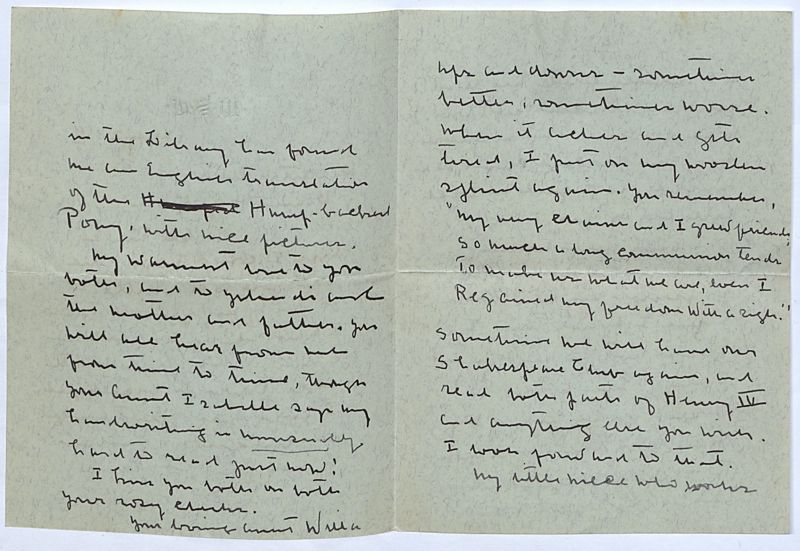 ups and downs – sometimes
better, sometimes worse.
When it aches and gets
tired, I put on my wooden
splint again. You remember,
"My very chains and I grew friends,
So much a long communion tends
To make us what we are, even I
Regained my freedom with a sigh."
Sometime we will have our
Shakespeare Club again, and
read both parts of Henry IV
and anything else you wish.
I look forward to that.
My little niece who works
in the Library has found
me an English translation
of the Hump-backed
Pony, with nice pictures.
My warmest love to you
both, and to Yehudi and
the mother and father. You
will all hear from me
from time to time, though
your aunt Isabelle says my
handwriting is unusually
hard to read just now!
I kiss you both on both
your rosy cheeks.
Your loving aunt Willa